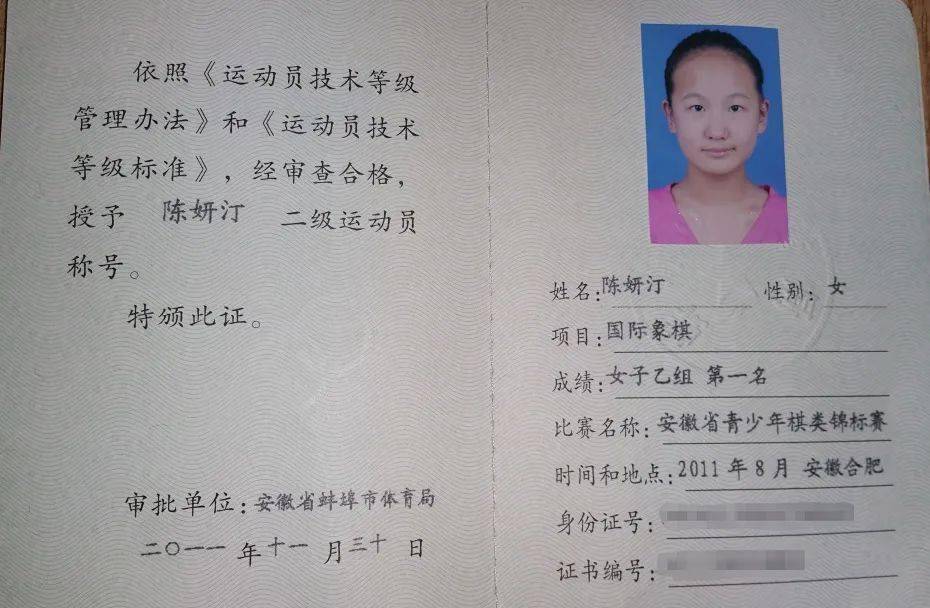 依照《运动员技术等级
管理办法》和《运动员技术
等级标准》，经审查合格，
授予 陈妍汀 二级运动员
称号。
特颁此证。
审批单位：安徽省蚌埠市体育局
二〇一一 年 十一 月 三十 日
姓名：陈妍汀 性别：女
项目：国际象棋
成绩：女子乙组 第一名
比赛名称：安徽省青少年棋类锦标赛
时间和地点：2011 年 8 月 安徽合肥
身份证号：
证书编号：